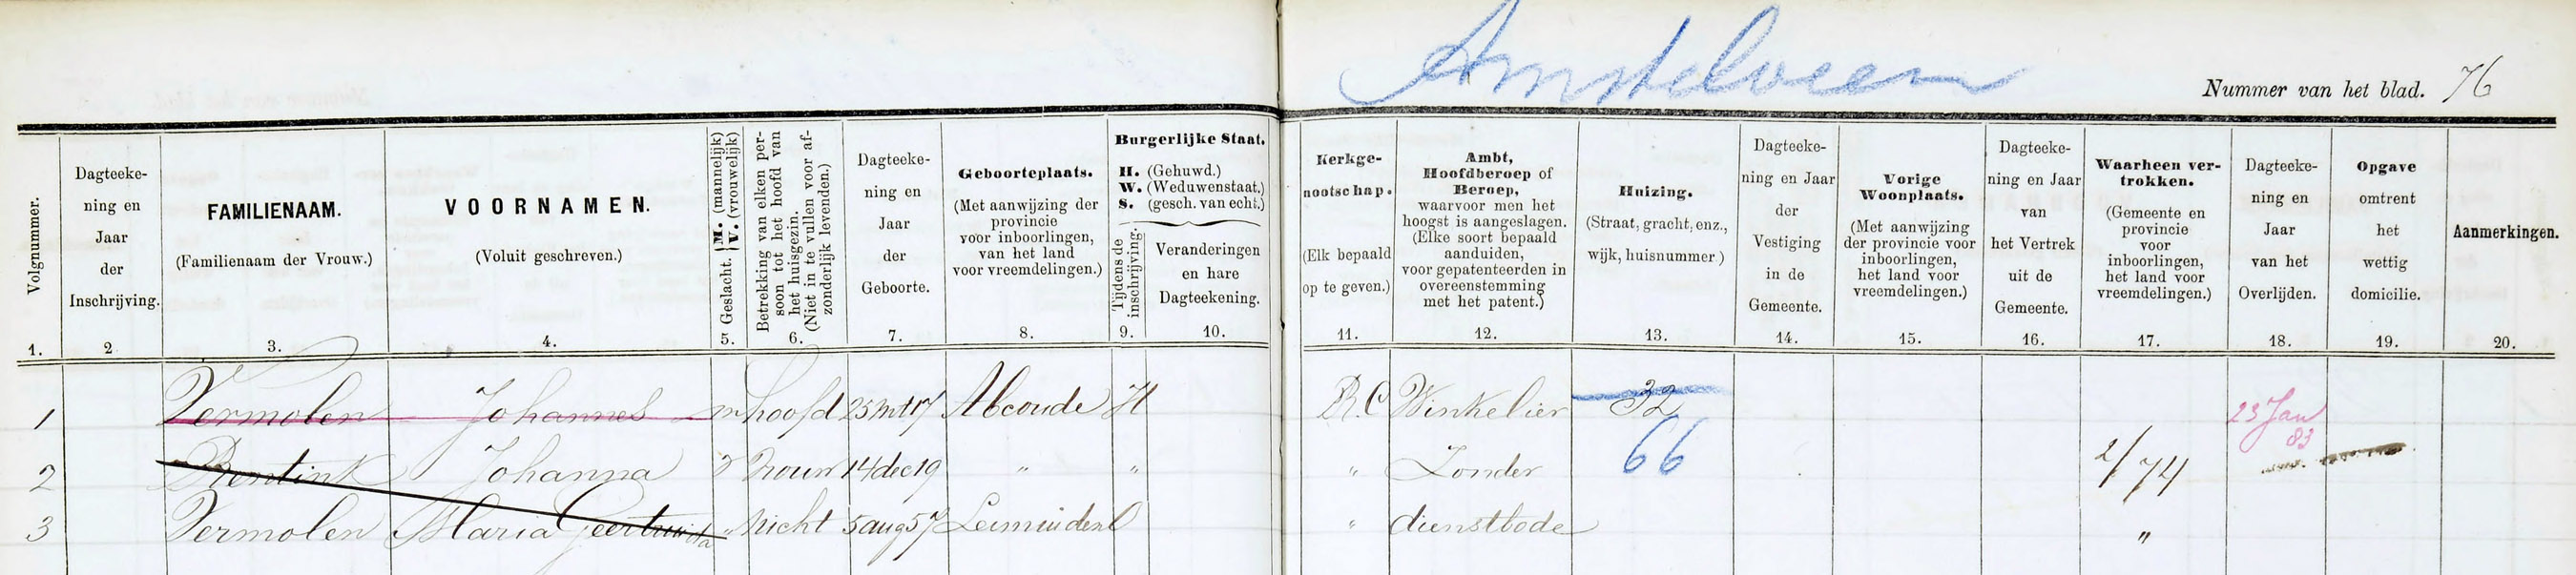 Amstelveen
Nummer van het blad. 76
Volgnummer.
1.
Dagteeke-
ning en
Jaar
der
Inschrijving.
2
FAMILIENAAM.
(Familienaam der Vrouw.)
3.
VOORNAMEN.
(Voluit geschreven.)
4.
Geslacht. { M. (mannelijk)
V. (vrouwelijk)
5.
Betrekking van elken per-
soon tot het hoofd van
het huisgezin.
(Niet in te vullen voor af-
zonderlijk levenden.)
6.
Dagteeke-
ning en
Jaar
der
Geboorte.
7.
Geboorteplaats.
(Met aanwijzing der
provincie
voor inboorlingen,
van het land
voor vreemdelingen.)
8.
Burgerlijke Staat.
H. (Gehuwd.)
W. (Weduwenstaat.)
S. (gesch. van echt.)
Tijdens de
inschrijving.
9.
Veranderingen
en hare
Dagteekening.
10.
Kerkge-
nootschap.
(Elk bepaald
op te geven.)
11.
Ambt,
Hoofdberoep of
Beroep,
waarvoor men het
hoogst is aangeslagen.
(Elke soort bepaald
aanduiden,
voor gepatenteerden in
overeenstemming
met het patent.)
12.
Huizing.
(Straat, gracht, enz.,
wijk, huisnummer)
13.
Dagteeke-
ning en Jaar
der
Vestiging
in de
Gemeente.
14.
Vorige
Woonplaats.
(Met aanwijzing
der provincie voor
inboorlingen,
het land voor
vreemdelingen.)
15.
Dagteeke-
ning en Jaar
van
het Vertrek
uit de
Gemeente.
16.
Waarheen ver-
trokken.
(Gemeente en
provincie
voor
inboorlingen,
het land voor
vreemdelingen.)
17.
Dagteeke-
ning en
Jaar
van het
Overlijden.
18.
Opgave
omtrent
het
wettig
domicilie.
19.
Aanmerkingen.
20.
1 Vermolen Johannes m hoofd 25 mrt 17 Abcoude H R.C Winkelier 32 23 Jan 83
2 Johanna v Vrouw 14 dec 19 " " " Zonder 66 2/74
3 Vermolen Maria Geertruida " Nicht 5 aug 57 Leimuiden O " dienstbode "